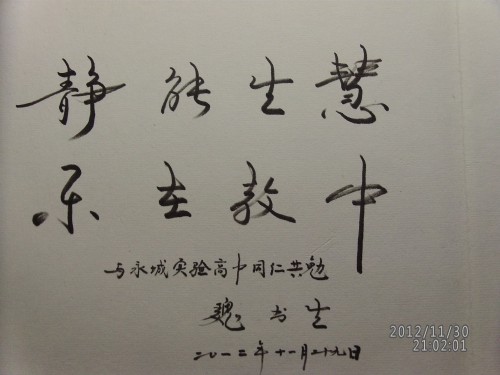 静能生慧
乐在教中
与永城实验高中同仁共勉
魏书生
二〇一二年十一月廿九日
2012/11/30
21:02:01